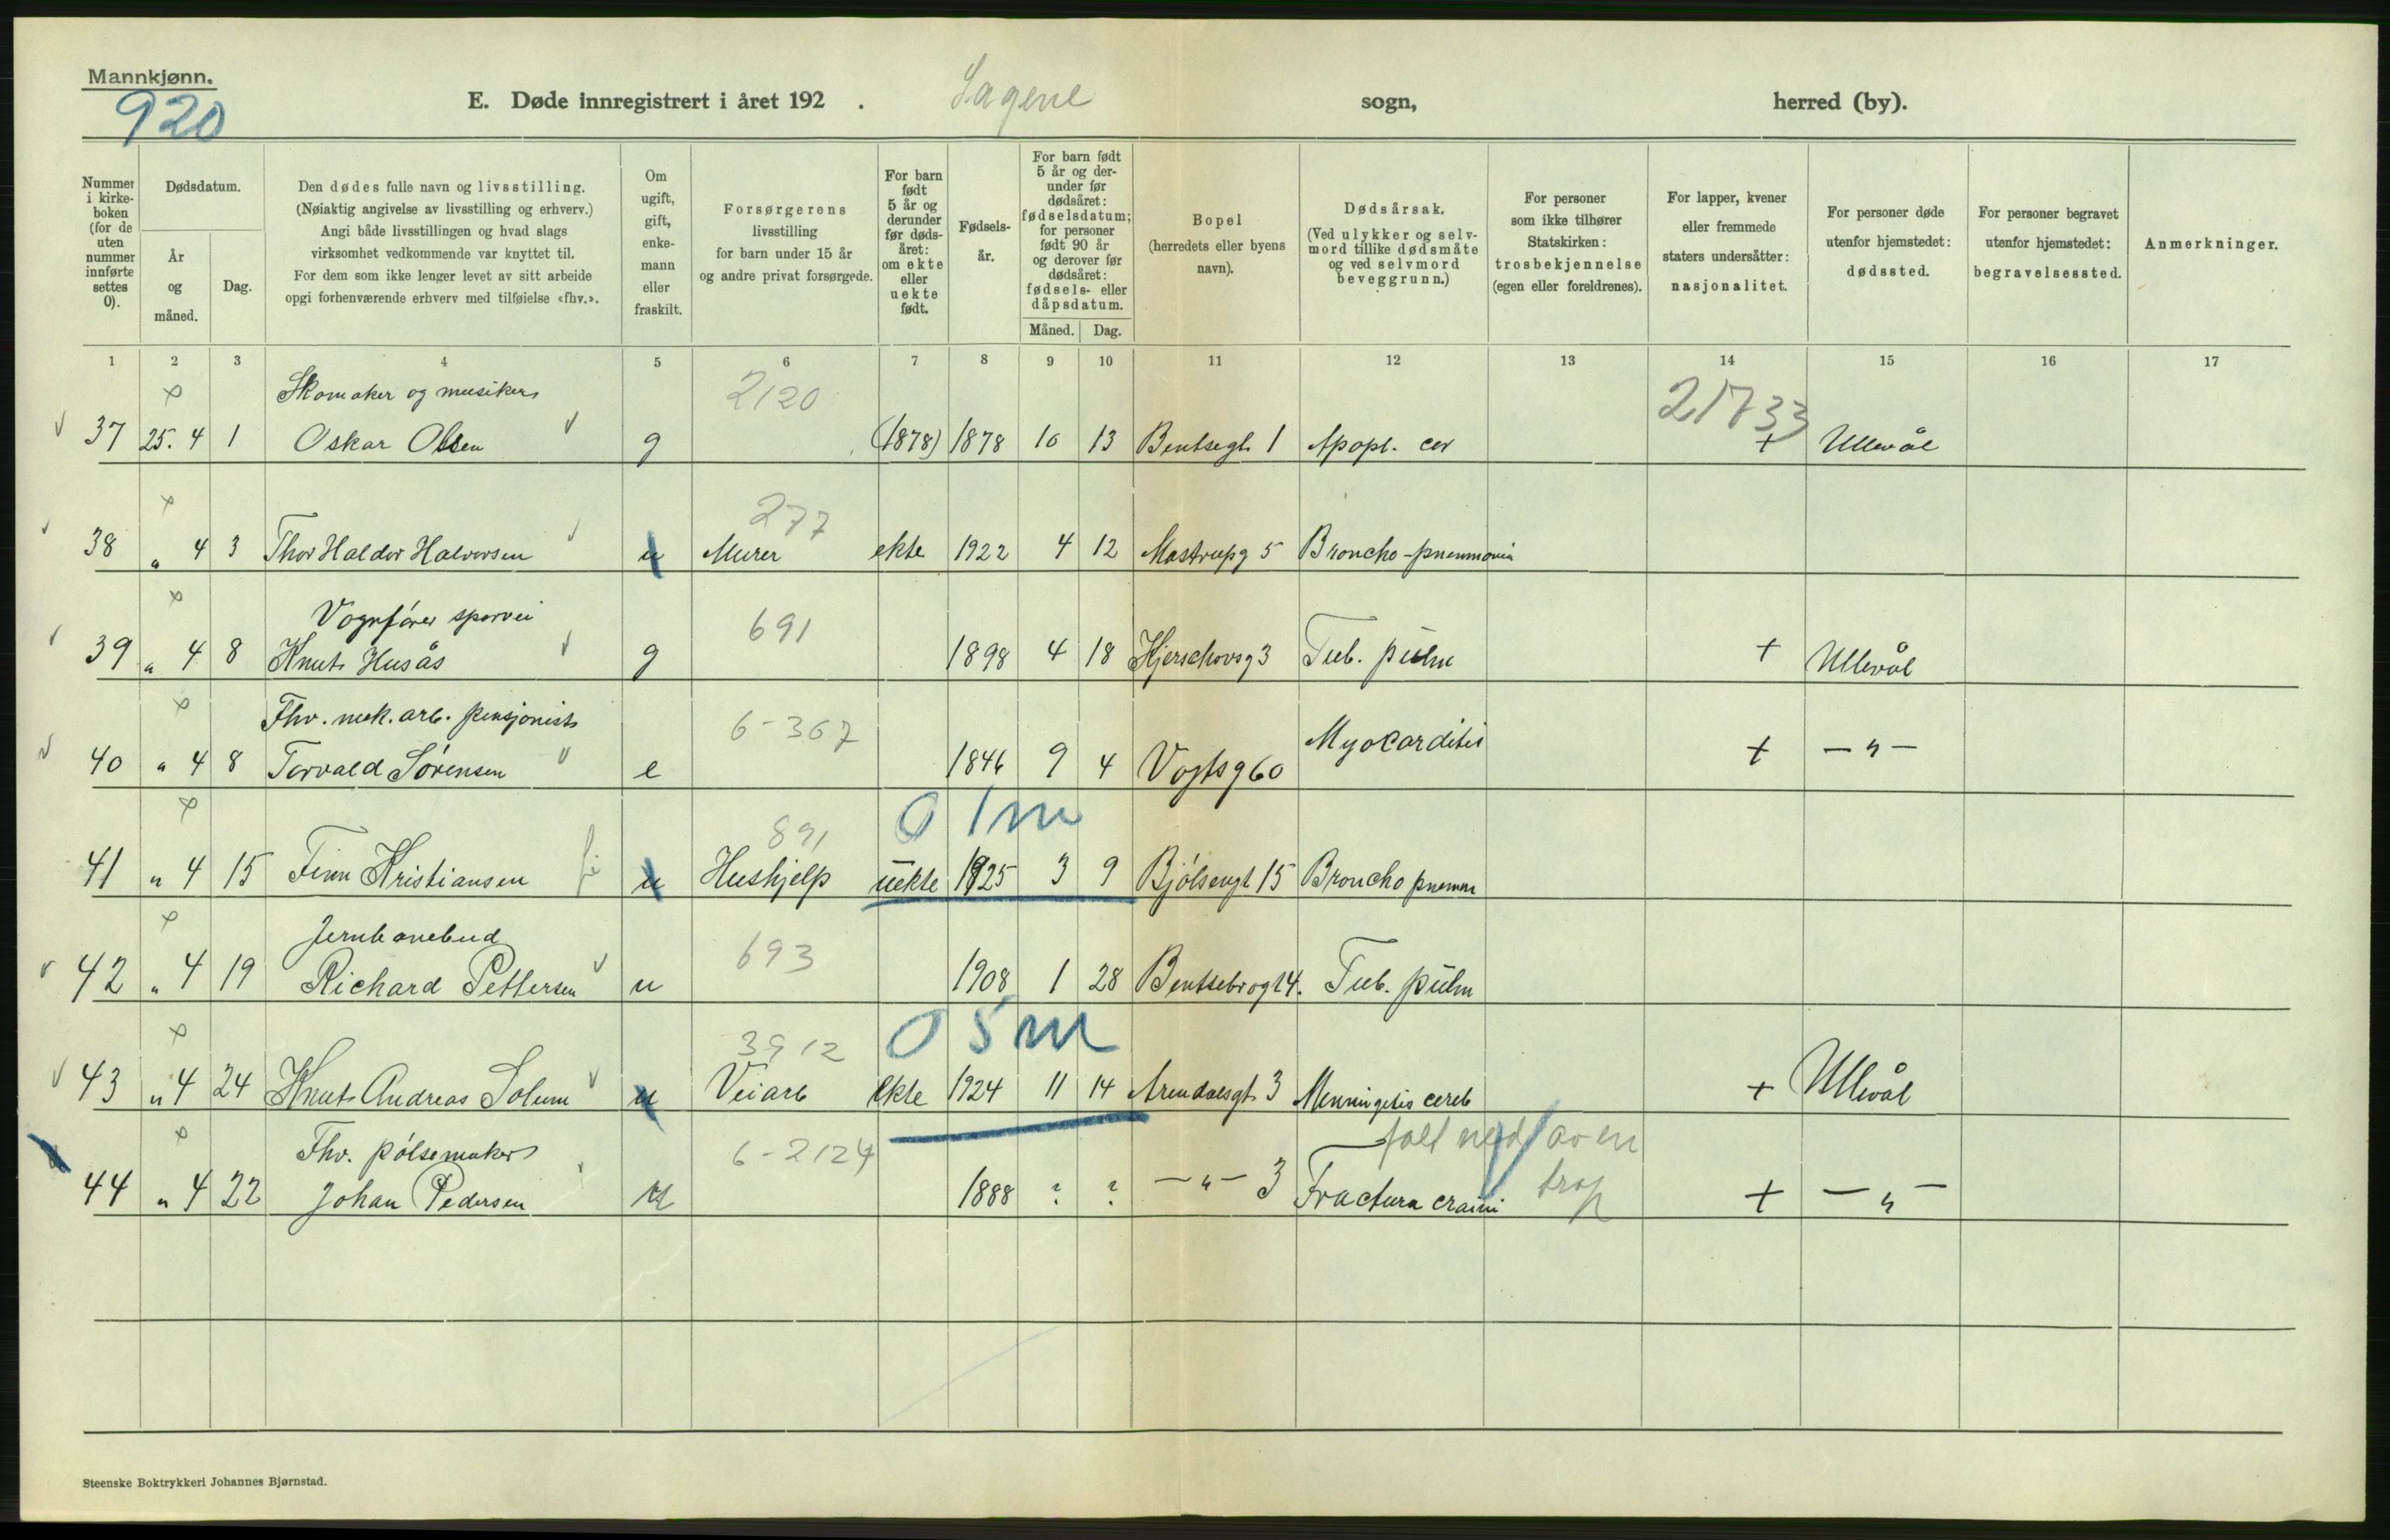 Mannkjønn.
920
E. Døde innregistrert i året 192 . Sagene sogn, herred (by).
Nummer i kirke-boken (for de uten nummer innførte settes 0).
Dødsdatum.
År og måned.
Dag.
Den dødes fulle navn og livsstilling.
(Nøiaktig angivelse av livsstilling og erhverv.)
Angi både livsstillingen og hvad slags
virksomhet vedkommende var knyttet til.
For dem som ikke lenger levet av sitt arbeide
opgi forhenværende erhverv med tilføielse «fhv.».
Om ugift, gift, enke-mann eller fraskilt.
Forsørgerens
livsstilling
for barn under 15 år
og andre privat forsørgede.
For barn født 5 år og derunder før døds-året: om ekte eller uekte født.
Fødsels-år.
For barn født 5 år og der-under før dødsåret: fødselsdatum; for personer født 90 år og derover før dødsåret: fødsels- eller dåpsdatum.
Måned. Dag.
Bopel
(herredets eller byens
navn).
Dødsårsak.
(Ved ulykker og selv-
mord tillike dødsmåte
og ved selvmord
beveggrunn.)
For personer
som ikke tilhører
Statskirken:
trosbekjennelse
(egen eller foreldrenes).
For lapper, kvener
eller fremmede
staters undersåtter:
nasjonalitet.
For personer døde
utenfor hjemstedet:
dødssted.
For personer begravet
utenfor hjemstedet:
begravelsessted.
Anmerkninger.
1 2 3 4 5 6 7 8 9 10 11 12 13 14 15 16 17
Skomaker og musiker 2120 21733
37 25. 4 1 Oskar Olsen g (1878) 1878 10 13 Bentsegt 1 Apopl. cer + Ullevål
277
38 " 4 3 Thor Haldor Halvorsen u Murer ekte 1922 4 12 Mastrupg 5 Broncho-pneumonia
Vognfører sporvei 691
39 " 4 8 Knut Husås g 1898 4 18 Kjerschovsg 3 Tub. pulm + Ullevål
Fhv. mek. arb. pensjonist 6-367
40 " 4 8 Torvald Sørensen e 1846 9 4 Vogtsg 60 Myocarditis + — " —
891 0 1 m
41 " 4 15 Finn Kristiansen u Hushjelp uekte 1925 3 9 Bjølsengt 15 Broncho pneum
Jernbanebud 693
42 " 4 19 Richard Pettersen u 1908 1 28 Bentsebrogt 4. Tub. pulm
3912 0 5 m
43 " 4 24 Knut Andreas Solum u Veiarb ekte 1924 11 14 Arendalsgt 3 Menningitis cereb + Ullevål
Fhv. pølsemaker 6-2124 falt ned av en
44 " 4 22 Johan Pedersen u 1888 ? ? — " — 3 Fractura cranii trap + — " —
Steenske Boktrykkeri Johannes Bjørnstad.